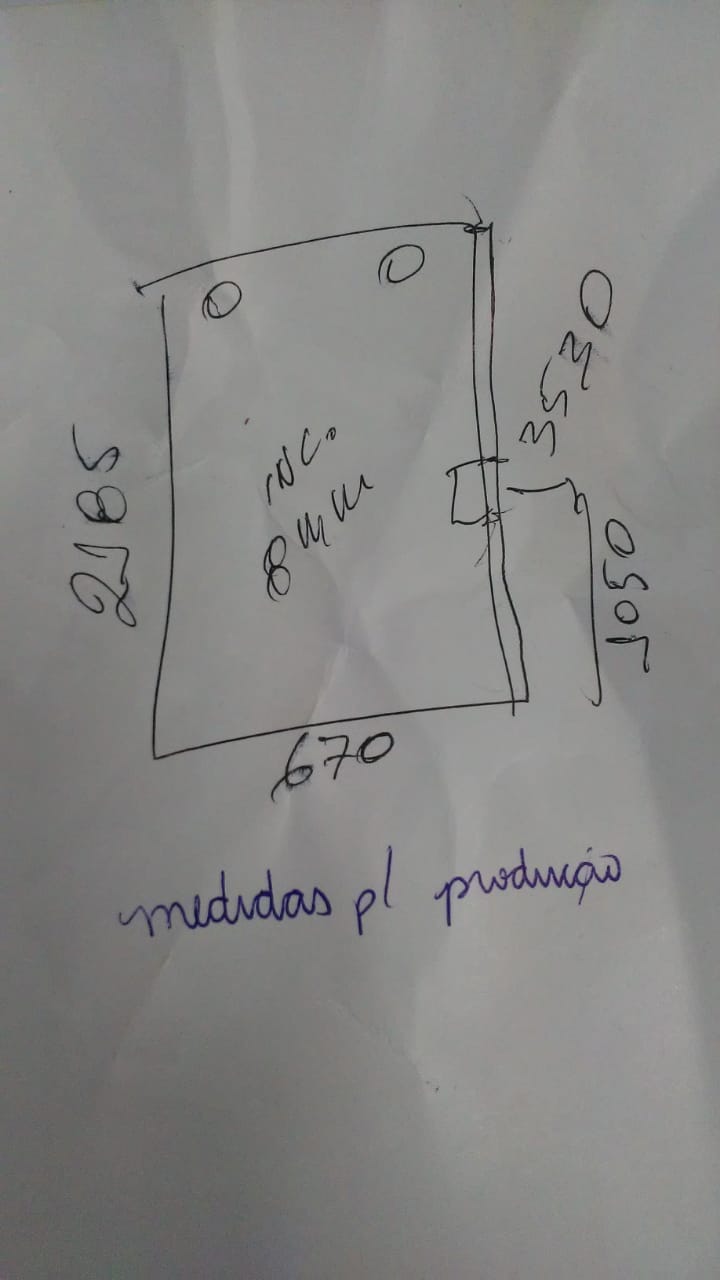 2185
inc.
8mm
3530
1050
670
medidas p/ produção